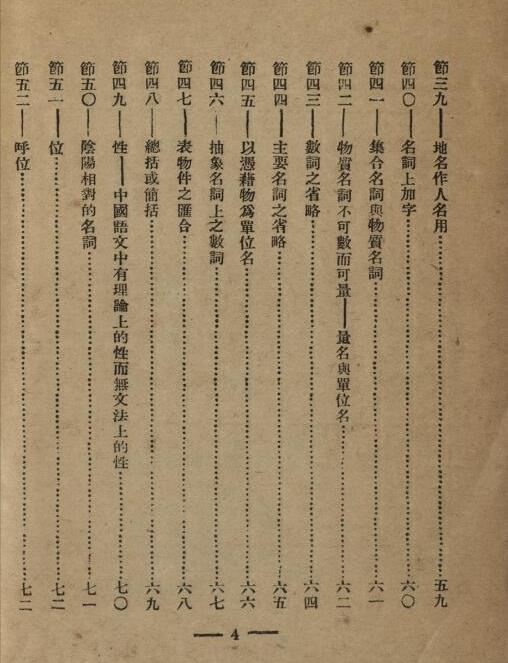 節三九——地名作人名用……五九
節四〇——名詞上加字……六〇
節四一——集合名詞與物質名詞……六一
節四二——物質名詞不可數而可量——量名與單位名……六二
節四三——數詞之省略……六四
節四四——主要名詞之省略……六五
節四五——以憑藉物爲單位名……六六
節四六——抽象名詞上之數詞……六七
節四七——表物件之匯合……六八
節四八——總括或簡括……六九
節四九——性——中國語文中有理論上的性而無文法上的性……七〇
節五〇——陰陽相對的名詞……七一
節五一——位……七二
節五二——呼位……七二
— 4 —